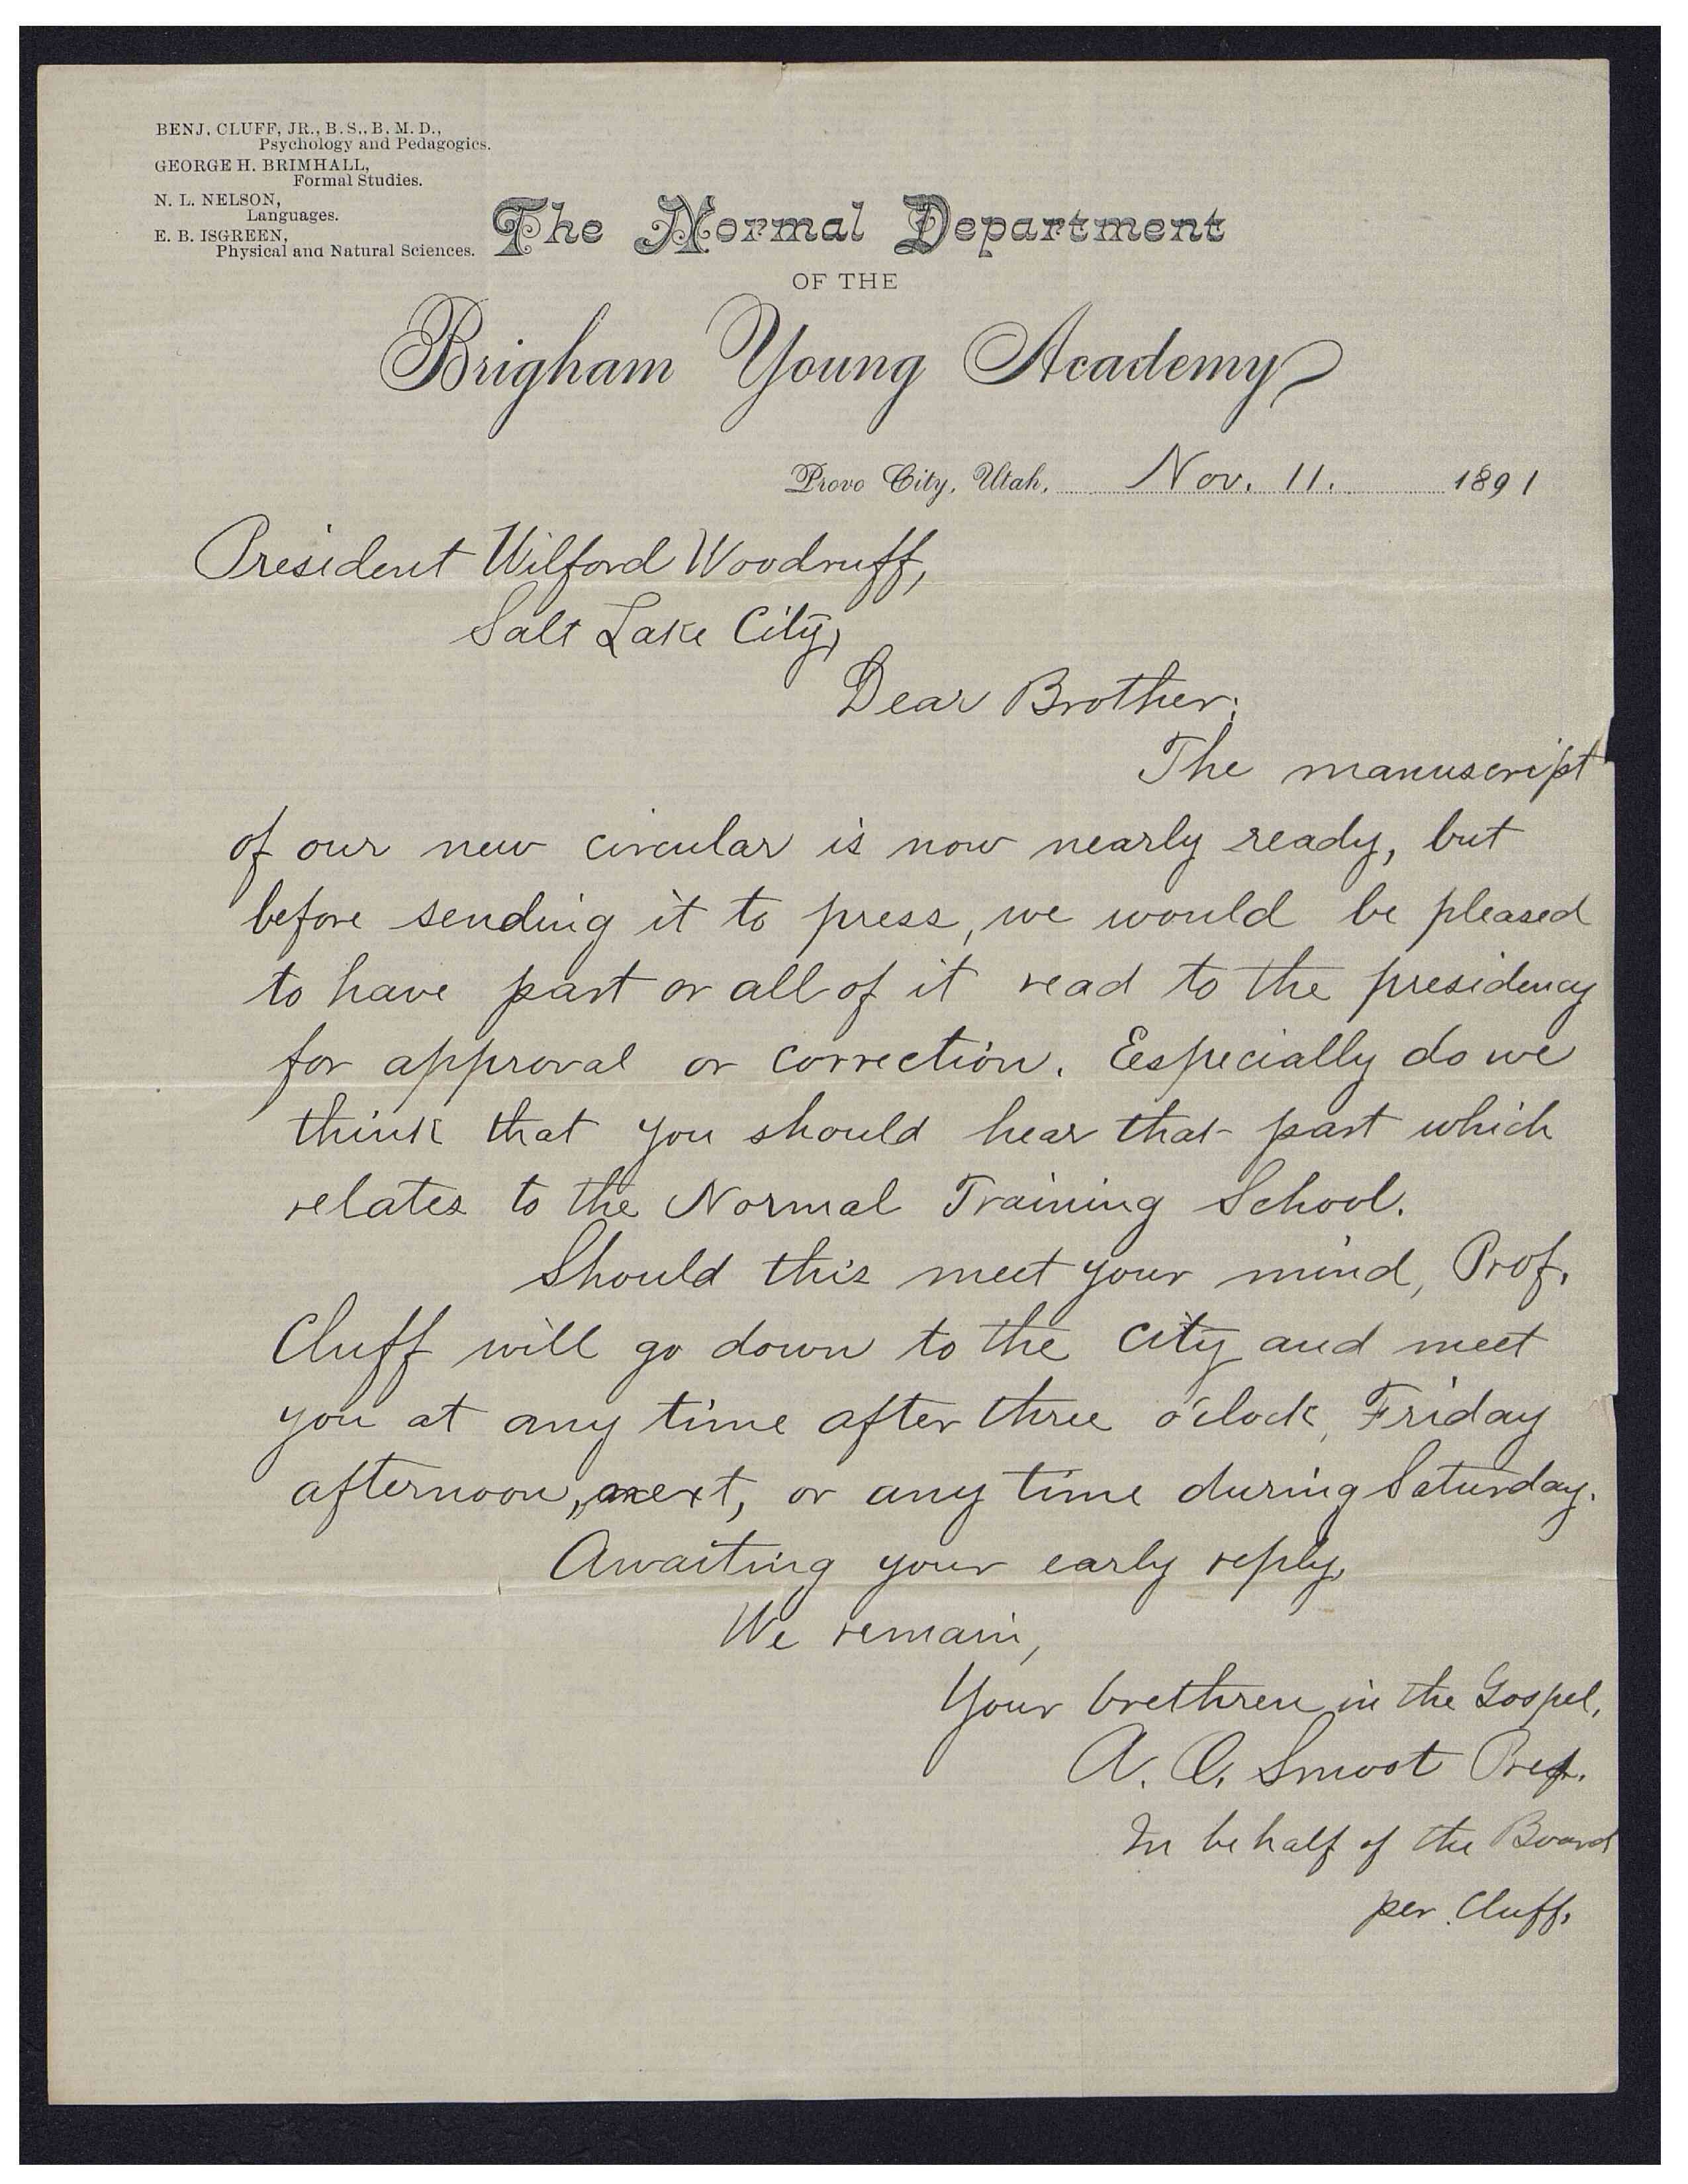 BENJ. CLUFF, JR., B.S., B. M. D.,
Psychology and Pedagogics.
GEORGE H. BRIMHALL,
Formal Studies.
N. L. NELSON,
Languages.
E. B. ISGREEN,
Physical and Natural Sciences.
The Normal Department
OF THE
Brigham Young Academy
Provo City, Utah, Nov. 11. 1891
President Wilford Woodruff,
Salt Lake City,
Dear Brother:
The manuscript
of our new circular is now nearly ready, but
before sending it to press, we would be pleased
to have part or all of it read to the presidency
for approval or correction. Eespecially do we
think that you should hear that part which
relates to the Normal Training School.
Should this meet your mind, Prof.
Cluff will go down to the city and meet
you at any time after three o'clock, Friday
afternoon, next, or any time during Saturday.
Awaiting your early reply,
We remain,
Your brethren in the Gospel,
A. O. Smoot Pres.
In behalf of the Board
per Cluff.